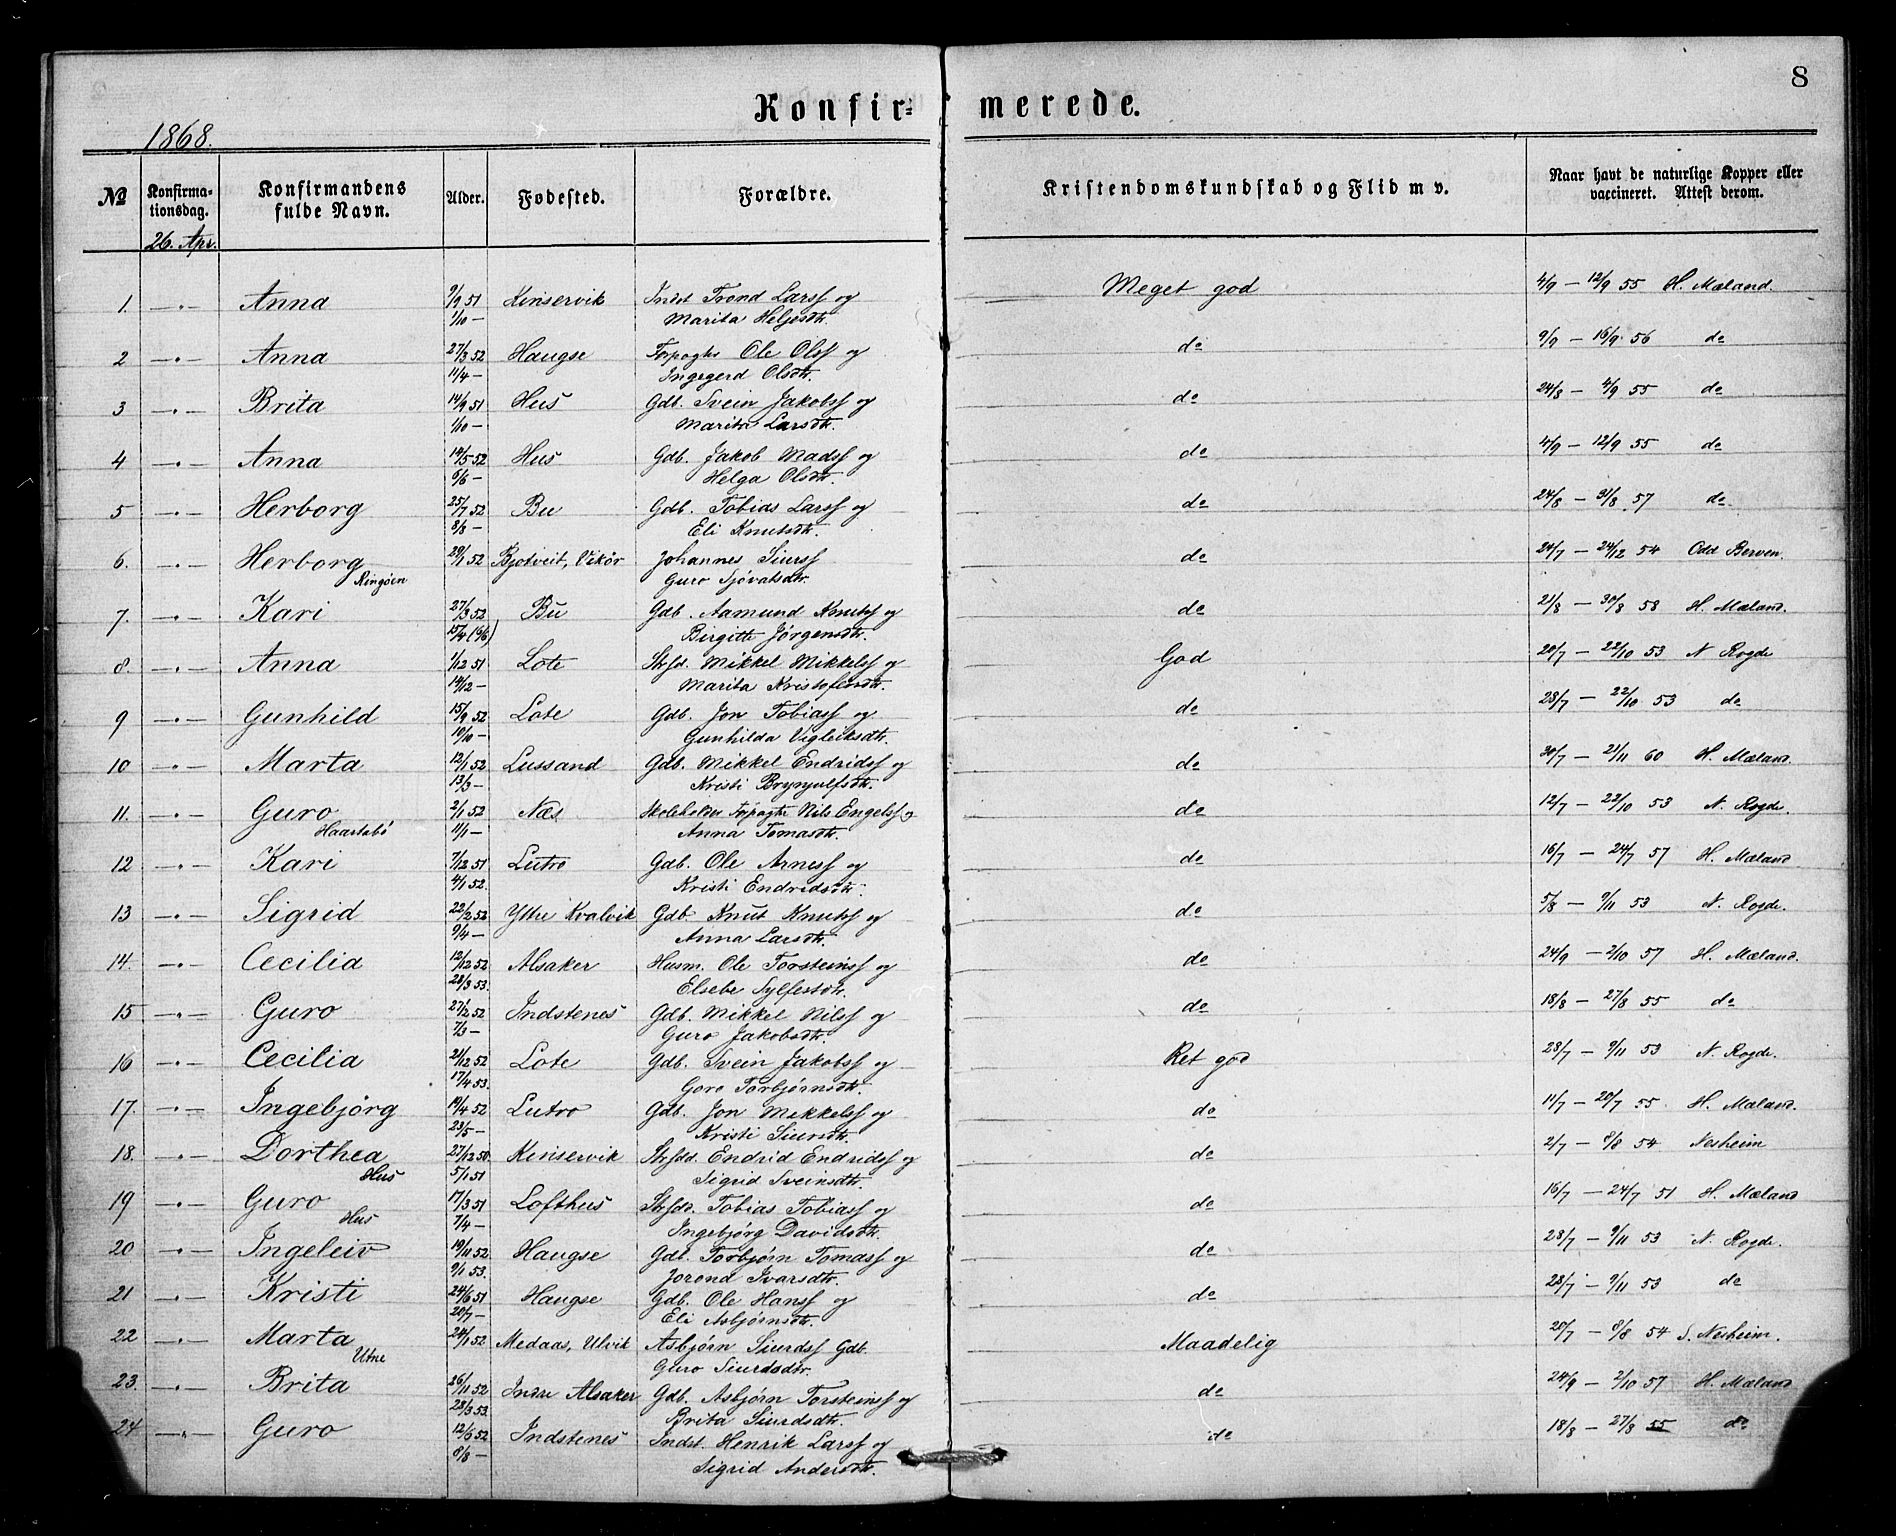 8
Konfir- merede.
1868.
№ Konfirma-tionsdag. Konfirmandens fulde Navn. Alder. Fødested. Forældre. Kristendomskundskab og Flid m v. Naar havt de naturlige Kopper eller vaccineret. Attest derom.
26. Apr.
1. —„— Anna 9/9 51 Kinservik Indst Trond Larsf og Meget god 4/9 — 12/9 55 H. Mæland.
1/10 — Marita Heljesdtr.
2 —„— Anna 27/3 52 Haugse Forpagtr Ole Olsf og do 9/9 — 16/9 56 do
11/4 — Ingegerd Olsdtr.
3 —„— Brita 14/9 51 Hus Gdb. Svein Jakobsf og do 24/8 — 4/9 55 do
1/10 — Marita Larsdtr.
4 —„— Anna 19/5 52 Hus Gdb. Jakob Madsf og do 4/9 — 12/9 55 do
6/6 — Helga Olsdtr.
5 —„— Herborg 25/7 52 Bu Gdb. Tobias Larsf og do 24/8 — 31/8 57 do
8/8 — Eli Knutsdtr.
6. —„— Herborg 29/1 52 Bjotveit, Vikør Johannes Siursf do 24/7 — 24/12 54 Odd Berven
Ringøen Guro Sjovatsdtr.
7. —„— Kari 27/3 52 Bu Gdb. Aamund Knutsf og do 21/8 — 30/8 58 H. Mæland.
15/4 (6/6) Birgitte Jørgensdtr.
8. —„— Anna 1/12 51 Lote Strsdd. Mikkel Mikkelsf og God 20/7 — 22/10 53 N Rogde
14/12 — Marita Kristofersdtr.
9 —„— Gunhild 15/9 52 Lote Gdb. Jon Tobiasf og do 28/7 — 22/10 53 do
10/10 — Gunhilda Vigleiksdtr.
10 —„— Marta 12/1 52 Lussand Gdb. Mikkel Endridsf og do 30/7 — 21/11 60 H. Mæland.
13/3 — Kristi Brynjulfsdtr.
11. —„— Guro 2/1 52 Næs Skoleholder Forpagtr Nils Engelsf og do 12/7 — 22/10 53 N. Rogde.
Haartabø 11/1 — Anna Tomasdtr.
12 —„— Kari 7/12 51 Lutro Gdb. Ole Arnesf og do 16/7 — 24/7 57 H. Mæland
4/1 52. Kristi Endridsdtr.
13 —„— Sigrid 22/2 52 Ytre Kvalvik Gdb. Knut Knutsf og do 5/8 — 9/11 53 N. Rogde.
9/4 — Anna Larsdtr.
14. —„— Cecilia 12/12 52 Alsaker Husm. Ole Torsteinsf og do 24/9 — 2/10 57 H. Mæland.
28/3 53. Elsebe Sylfestdtr.
15 —„— Guro 27/2 52 Indstenes Gdb. Mikkel Nilsf og do 18/8 — 27/8 55 do
7/3 — Guro Jakobsdtr.
16 —„— Cecilia 21/12 52 Lote Gdb. Svein Jakobsf og Ret god 28/7 — 9/11 53 N. Rogde.
17/4 53. Goro Torbjørnsdtr.
17. —„— Ingebjørg 19/4 52 Lutro Gdb. Jon Mikkelsf og do 11/7 — 20/7 55 H. Mæland.
23/5 — Kristi Siursdtr.
18. —„— Dorthea 27/12 50 Kinservik Strsdd. Endrid Endridsf og do 2/7 — 8/8 54 Nesheim
Hus 5/1 51 Sigrid Sveinsdtr.
19 —„— Guro 17/3 51 Lofthus Strsdd. Tobias Tobiasf og do 16/7 — 24/7 51 H. Mæland
Hus 7/4 — Ingebjørg Davidsdtr.
20 —„— Ingeleiv 19/11 52. Haugse Gdb. Torbjørn Tomasf og do 28/7 — 9/11 53 N. Rogde.
9/1 53. Jorond Ivarsdtr.
21 —„— Kristi 24/6 51 Haugse Gdb. Ole Hansf og do 28/7 — 9/11 53 do
20/7 — Eli Asbjørnsdtr.
22 —„— Marta 24/1 52 Medaas, Ulvik Asbjørn Siurdsf Gdb. Maadelig 20/7 — 8/8 54 S. Nesheim.
Utne Guro Siurdsdtr.
23. —„— Brita 26/11 52 Indre Alsaker Gdb. Asbjørn Torsteinsf og do 24/9 — 2/10 57 H. Mæland
28/3 53. Brita Siurdsdtr.
24 —„— Guro 12/6 52 Indstenes Indst. Henrik Larsf og do 18/8 — 27/8 55 do
8/8 — Sigrid Andersdtr.